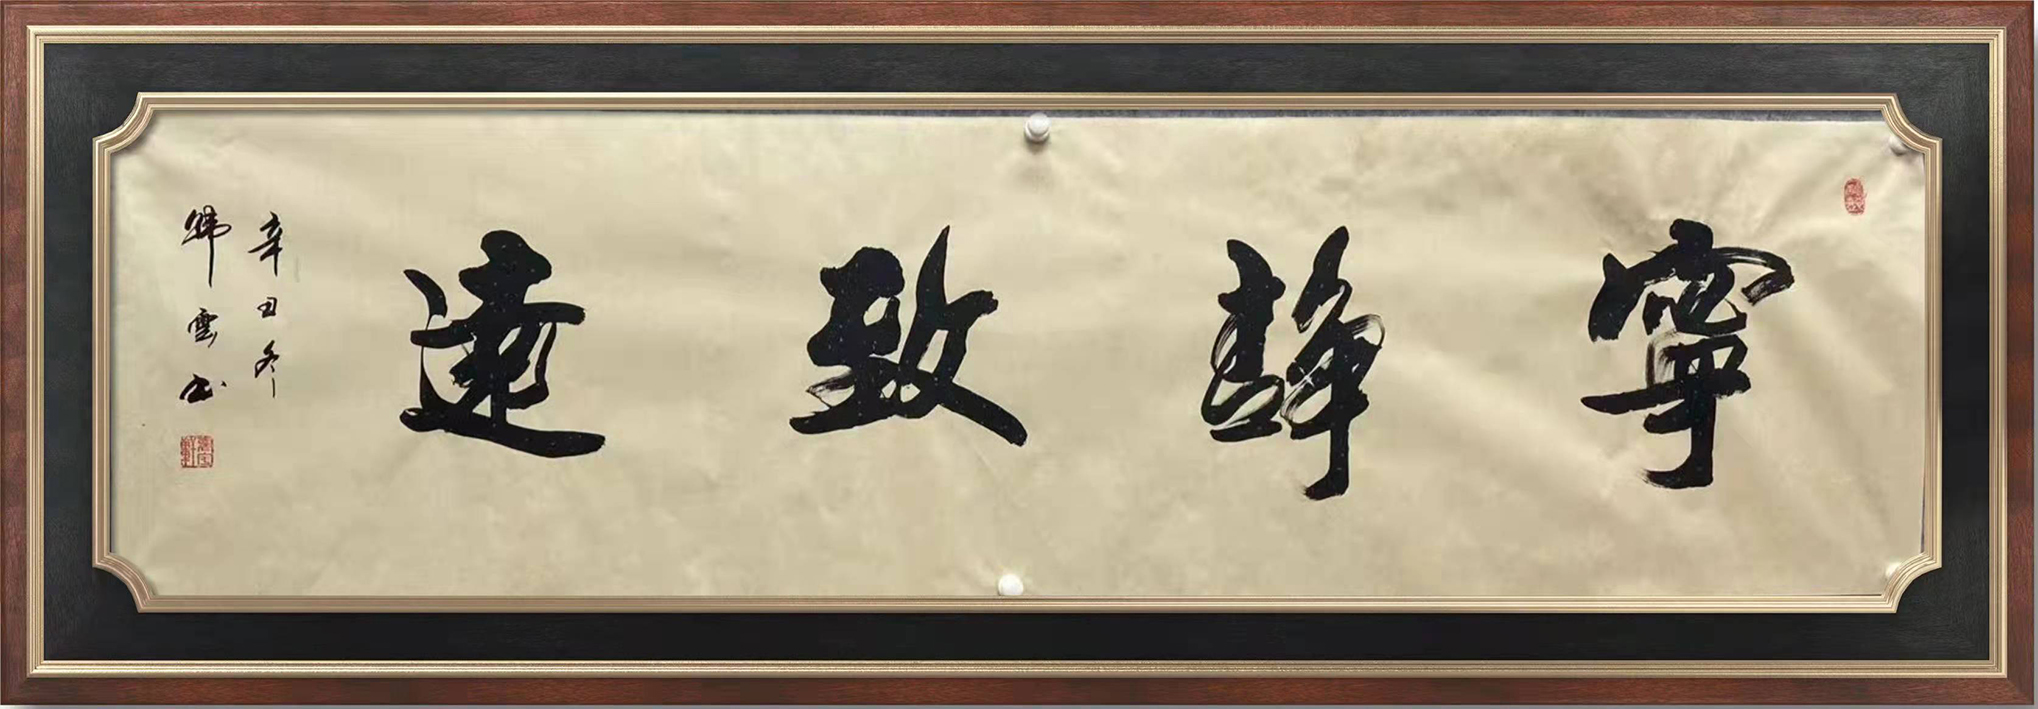 寧靜致遠
辛丑冬
雲书